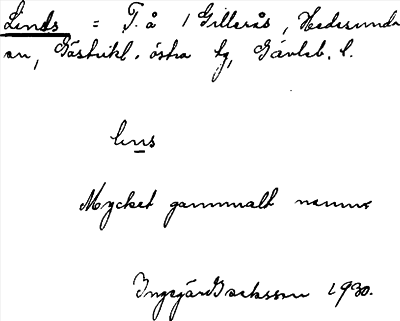 Linds = T. å / Gillerås, Hedesunda
sn, Gästrikl. östra tg, Gävleb. l.
lins
Mycket gammalt namn
Ingvar Isaksson 1930.